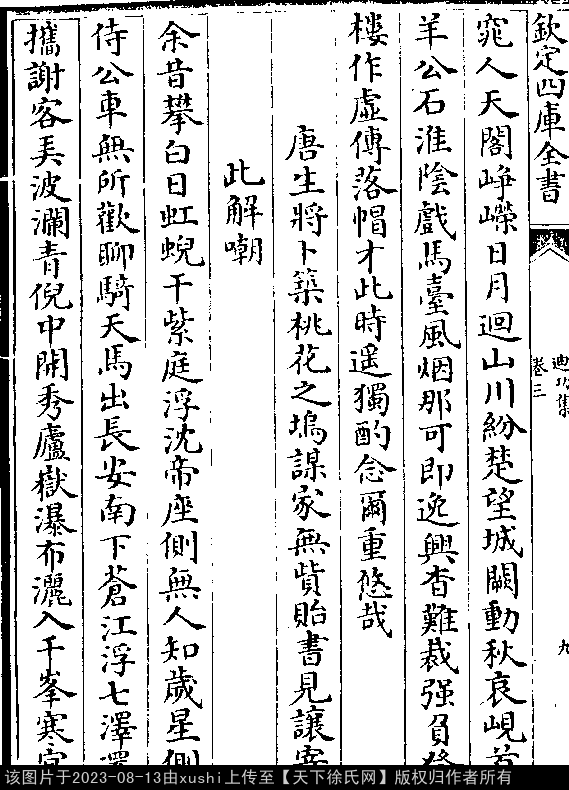 欽定四庫全書
迪功集
卷三
九
窕人天閣崢嶸日月迴山川紛楚望城闕動秋哀峴首
羊公石淮陰戲馬臺風烟那可即逸興杳難裁强負登
樓作虛傳落帽才此時遥獨酌念爾重悠哉
唐生將卜築桃花之塢謀家無貲貽書見讓寄
此解嘲
余昔攀白日虹蜺干紫庭浮沈帝座側無人知歲星側
侍公車無所歡聊騎天馬出長安南下蒼江浮七澤還
攜謝客弄波瀾青倪中開秀廬嶽瀑布灑入千峯寒
该图片于2023-08-13由xushi上传至【天下徐氏网】版权归作者所有